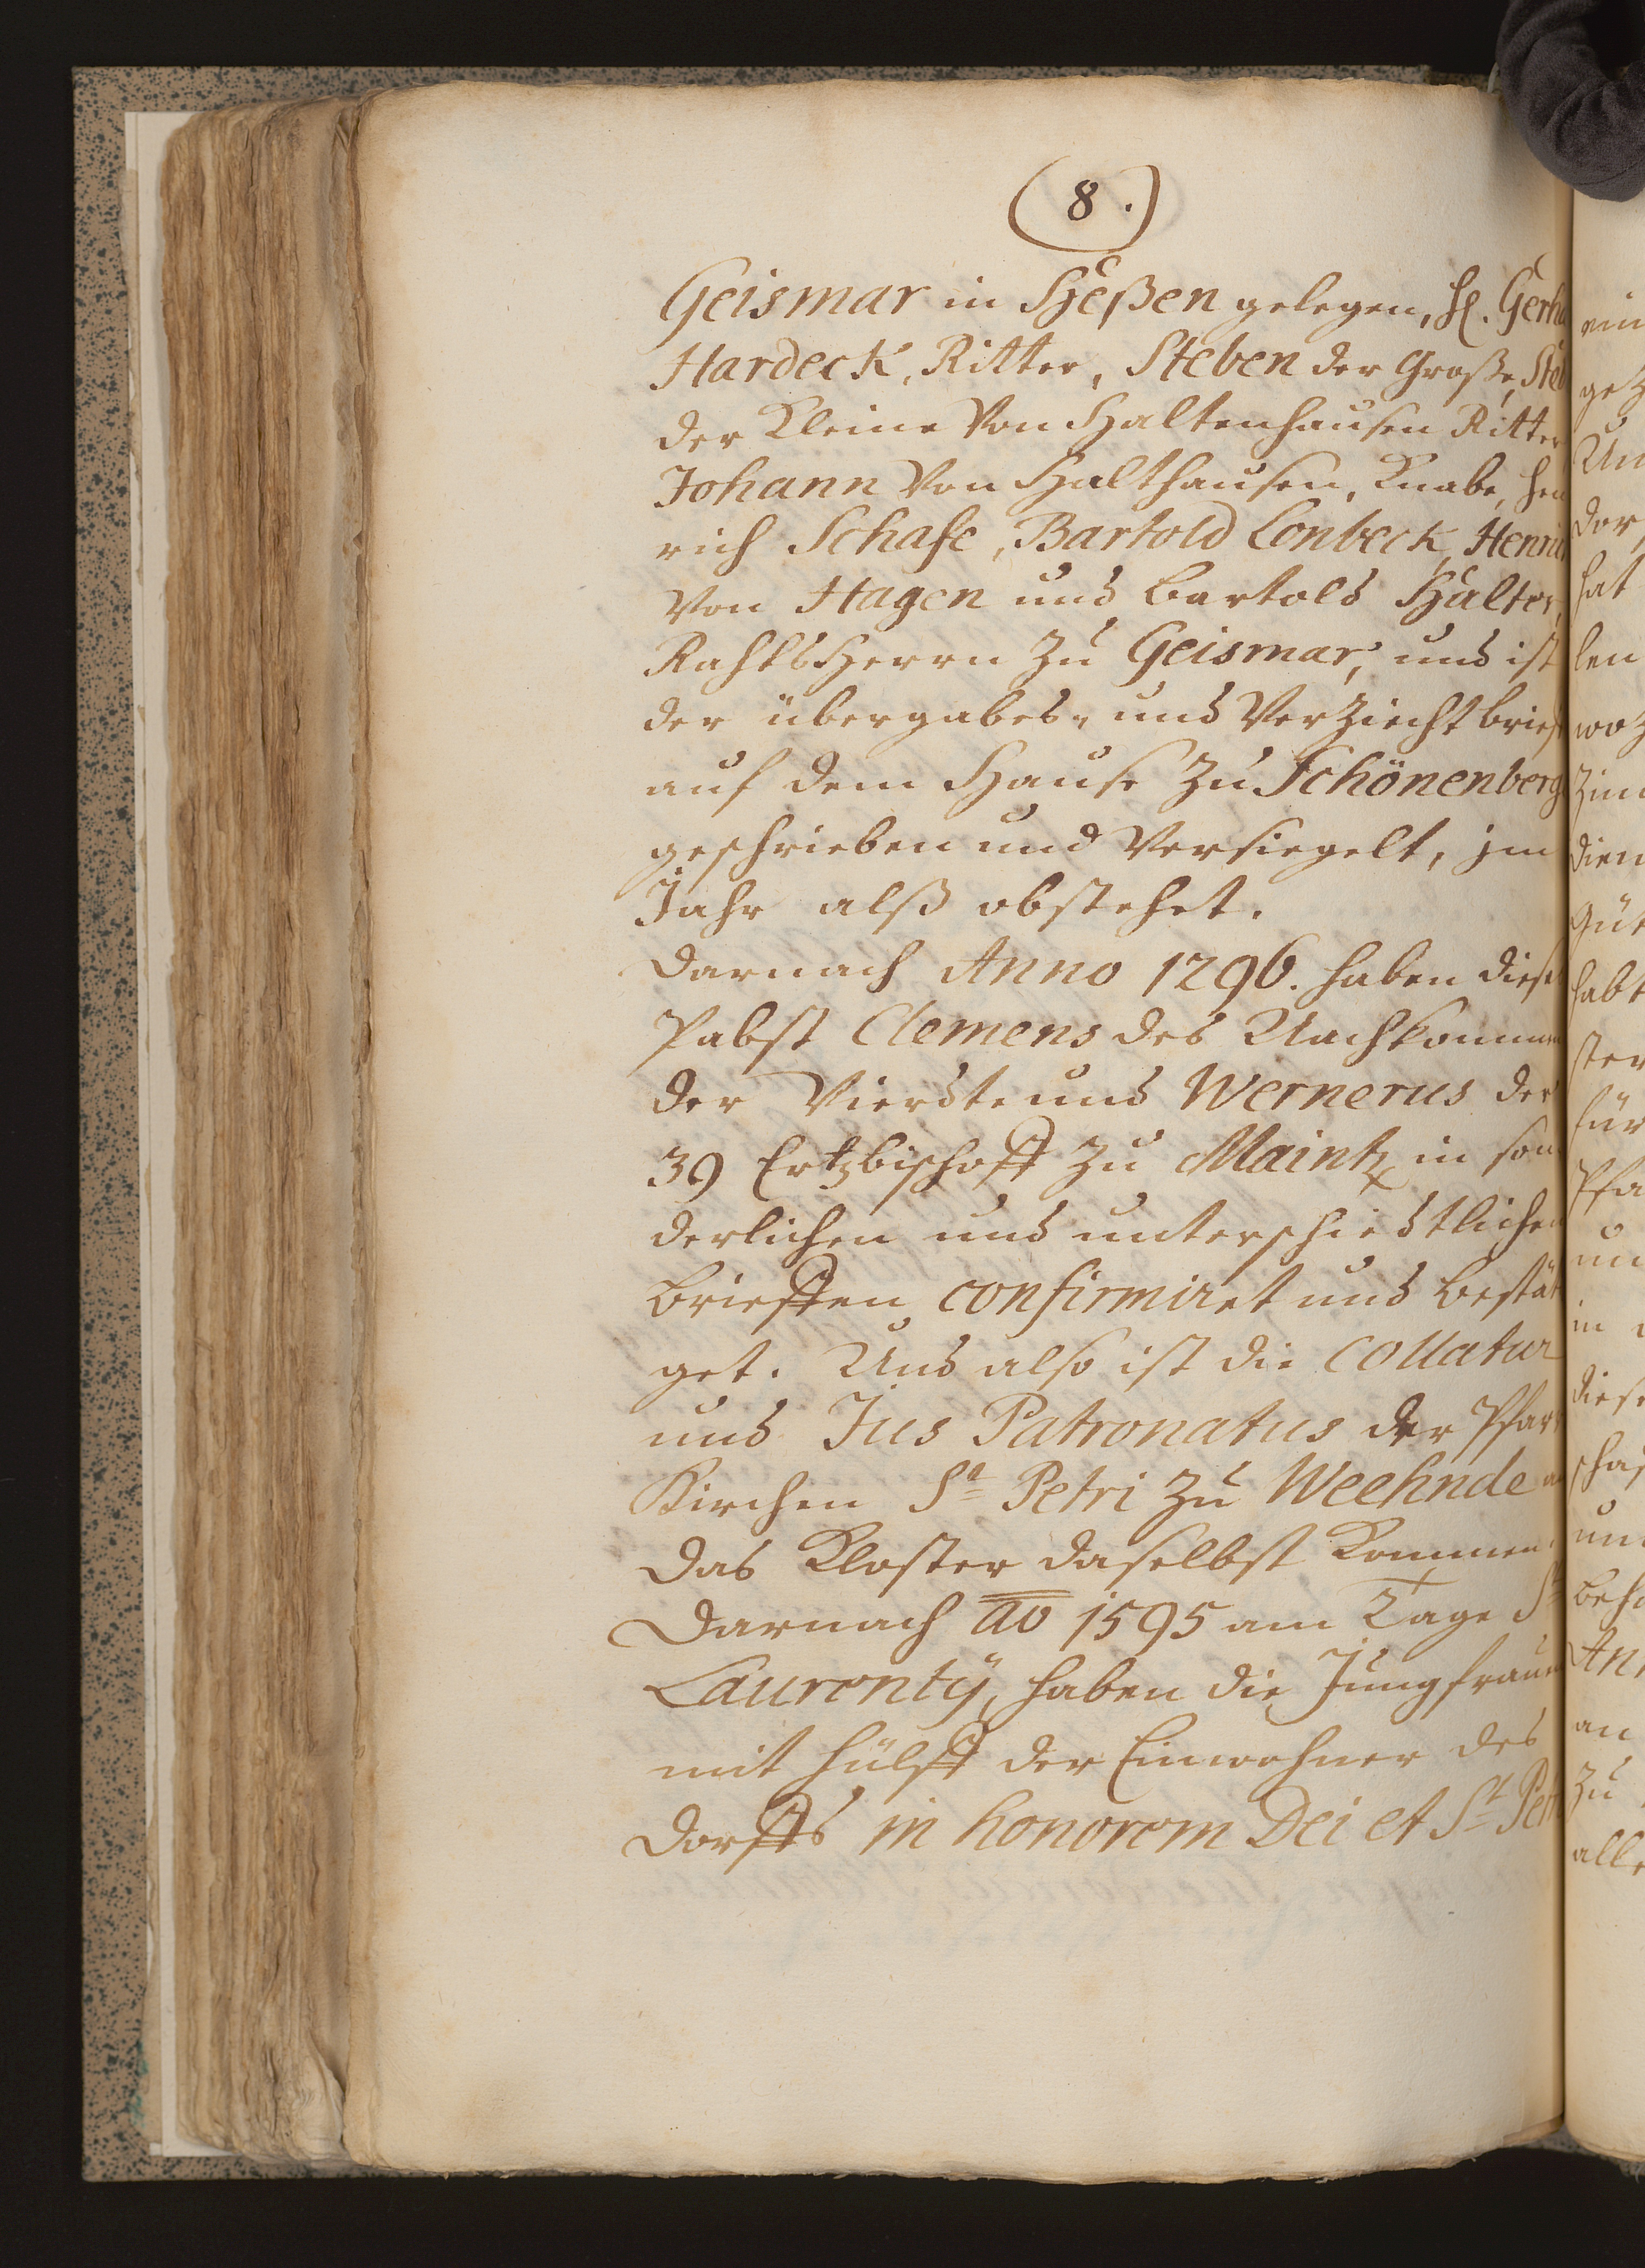 (8.)
Geismar in Heßen gelegen, H. Gerha
Hardeck, Ritter, Steben der Große, Steb
der Kleine Von Haltenhausen Ritter
Johann Von Halthausen, Knabe, Hen
rich Schafe, Bartold Conbeck, Henri
Von Hagen und Bartold Hälter,
RahtsHerrn zu Geismar, und ist
der übergabes- und Verziechtbrief
auf dem Hause zu Schönenberg
geschrieben und Versiegelt, jm
Jahr alß obstehet.
Darnach Anno 1296. haben diese
Pabst Clemens des Nachkomme
der Vierdte und Wernerus der
39 Ertzbischoff zu Maintz in son
derlichen und unterschiedtlichen
brieffen confirmiret und bestät
get. Und also ist die Collatur
und Jus Patronatus der Pfarr
Kirchen St Petri zu Weehnde a
das Kloster daselbst Kommen.
Darnach ao 1595 am Tage St
Laurenty, haben die Jungfrauen
mit hülff der Einwohner des
dorffs in honorem Dei et St Petr
ein
getz
Un
dor
hat
len
woz
zim
dien
Güt
habt
ster
für
Pfa
un
in
diese
schaf
un
beh
An
an
zu
alle